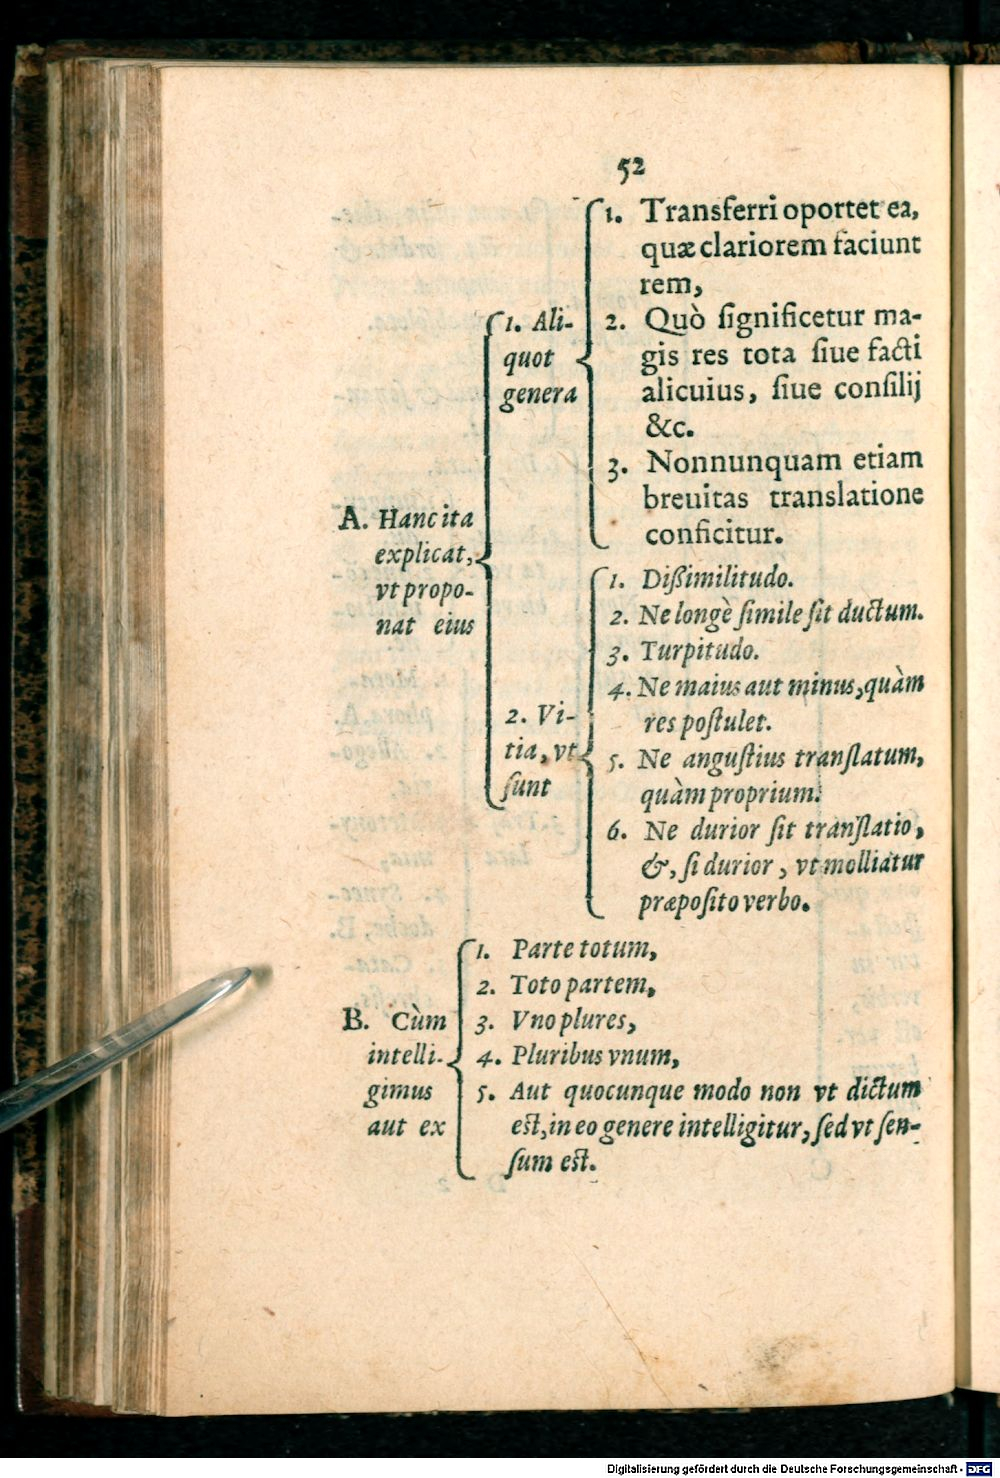 52
A. Hanc ita
explicat,
vt propo-
nat eius
1. Ali-
quot
genera
1. Transferri oportet ea,
quæ clariorem faciunt
rem,
2. Quò ſignificetur ma-
gis res tota ſiue facti
alicuius, ſiue conſilij
&c.
3. Nonnunquam etiam
breuitas translatione
conficitur.
2. Vi-
tia, vt
ſunt
1. Dißimilitudo.
2. Ne longè ſimile ſit ductum.
3. Turpitudo.
4. Ne maius aut minus, quàm
res poſtulet.
5. Ne anguſtius tranſlatum,
quàm proprium.
6. Ne durior ſit tranſlatio,
&, ſi durior, vt molliatur
præpoſito verbo.
B. Cùm
intelli-
gimus
aut ex
1. Parte totum,
2. Toto partem,
3. Vno plures,
4. Pluribus vnum,
5. Aut quocunque modo non vt dictum
eſt, in eo genere intelligitur, ſed vt ſen-
ſum eſt.
Digitalisierung gefördert durch die Deutsche Forschungsgemeinschaft - DFG